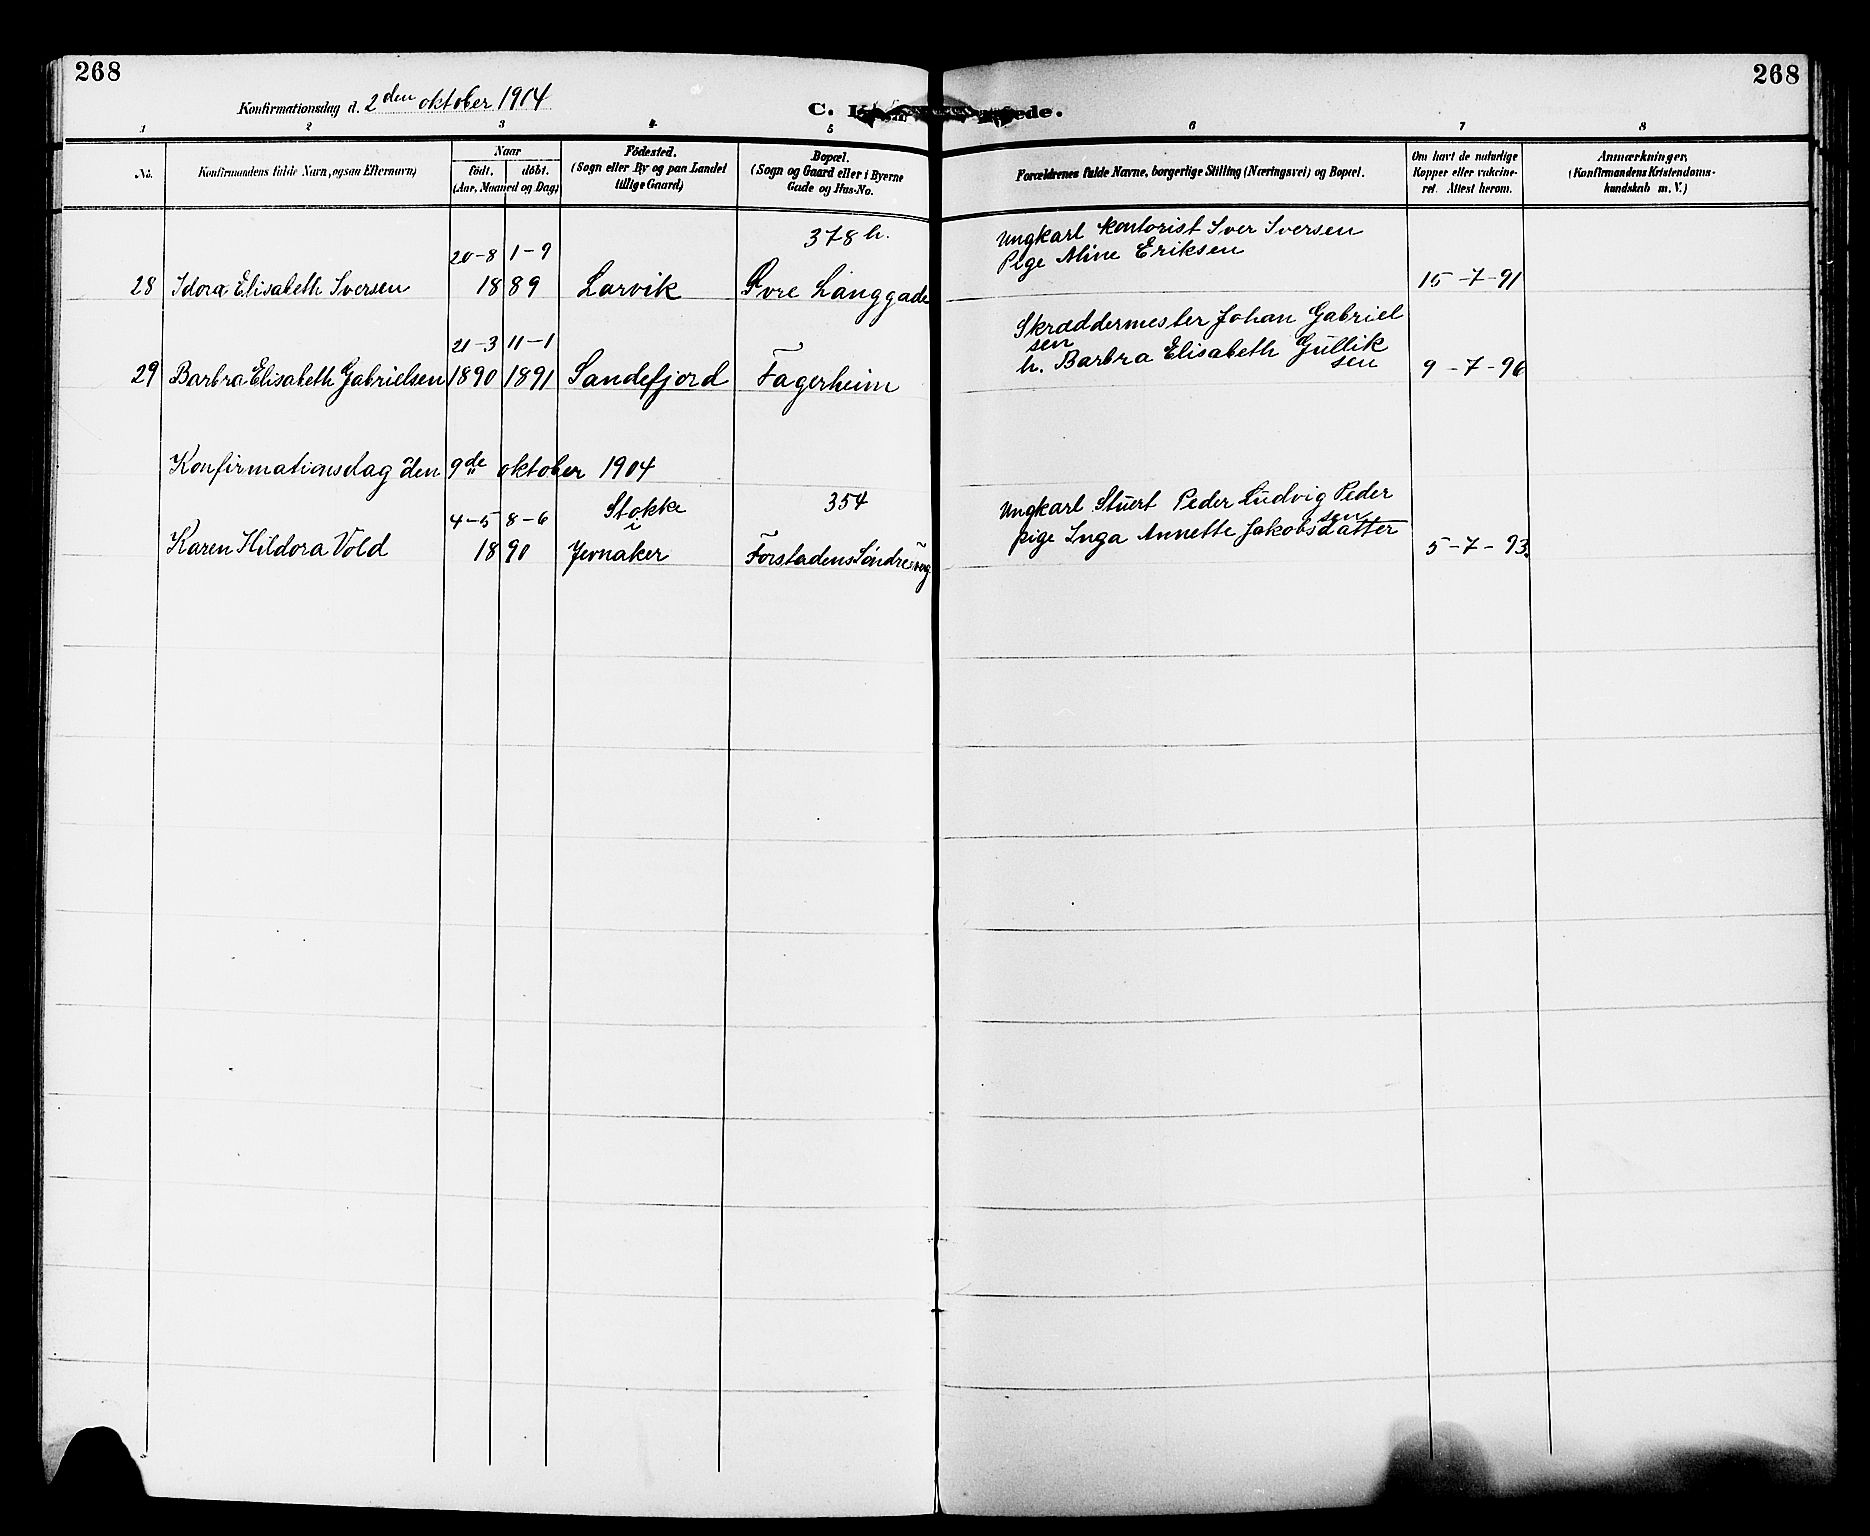 268
268
Konfirmationsdag d. 2den oktober 1904
C.
1 2 3 4 5 6 7 8
No.
Konfirmandens fulde Navn, ogsaa Efternavn)
Naar
født. døbt.
(Aar, Maaned og Dag)
Fødested.
(Sogn eller By og paa Landet
tillige Gaard)
Bopæl.
(Sogn og Gaard eller i Byerne
Gade og Hus-No.
Forældrenes fulde Navne, borgerlige Stilling (Næringsvei) og Bopæl.
Om havt de naturlige
Kopper eller vakcine-
ret. Attest herom.
Anmærkninger,
(Konfirmandens Kristendoms-
kundskab m. V.)
378 h.
Ungkarl kontorist Iver Iversen
20-8 1-9
Pige Aline Eriksen
28 Idora Elisabeth Iversen 1889 Larvik Øvre Langgade 15-7-91
Skræddermester Johan Gabriel
sen
21-3 11-1
h. Barbra Elisabeth Gullik
sen
29 Barbra Elisabeth Gabrielsen 1890 1891 Sandefjord Fagerheim 9-7-96
Konfirmationsdag den 9de oktober 1904
354
Stokke
i
Ungkarl Stuert Peder Ludvig Peder
sen
4-5 8-6
pige Inga Annette Jakobsdatter
Karen Hildora Vold 1890 Jevnaker Forstadens Søndre veg 5-7-93.